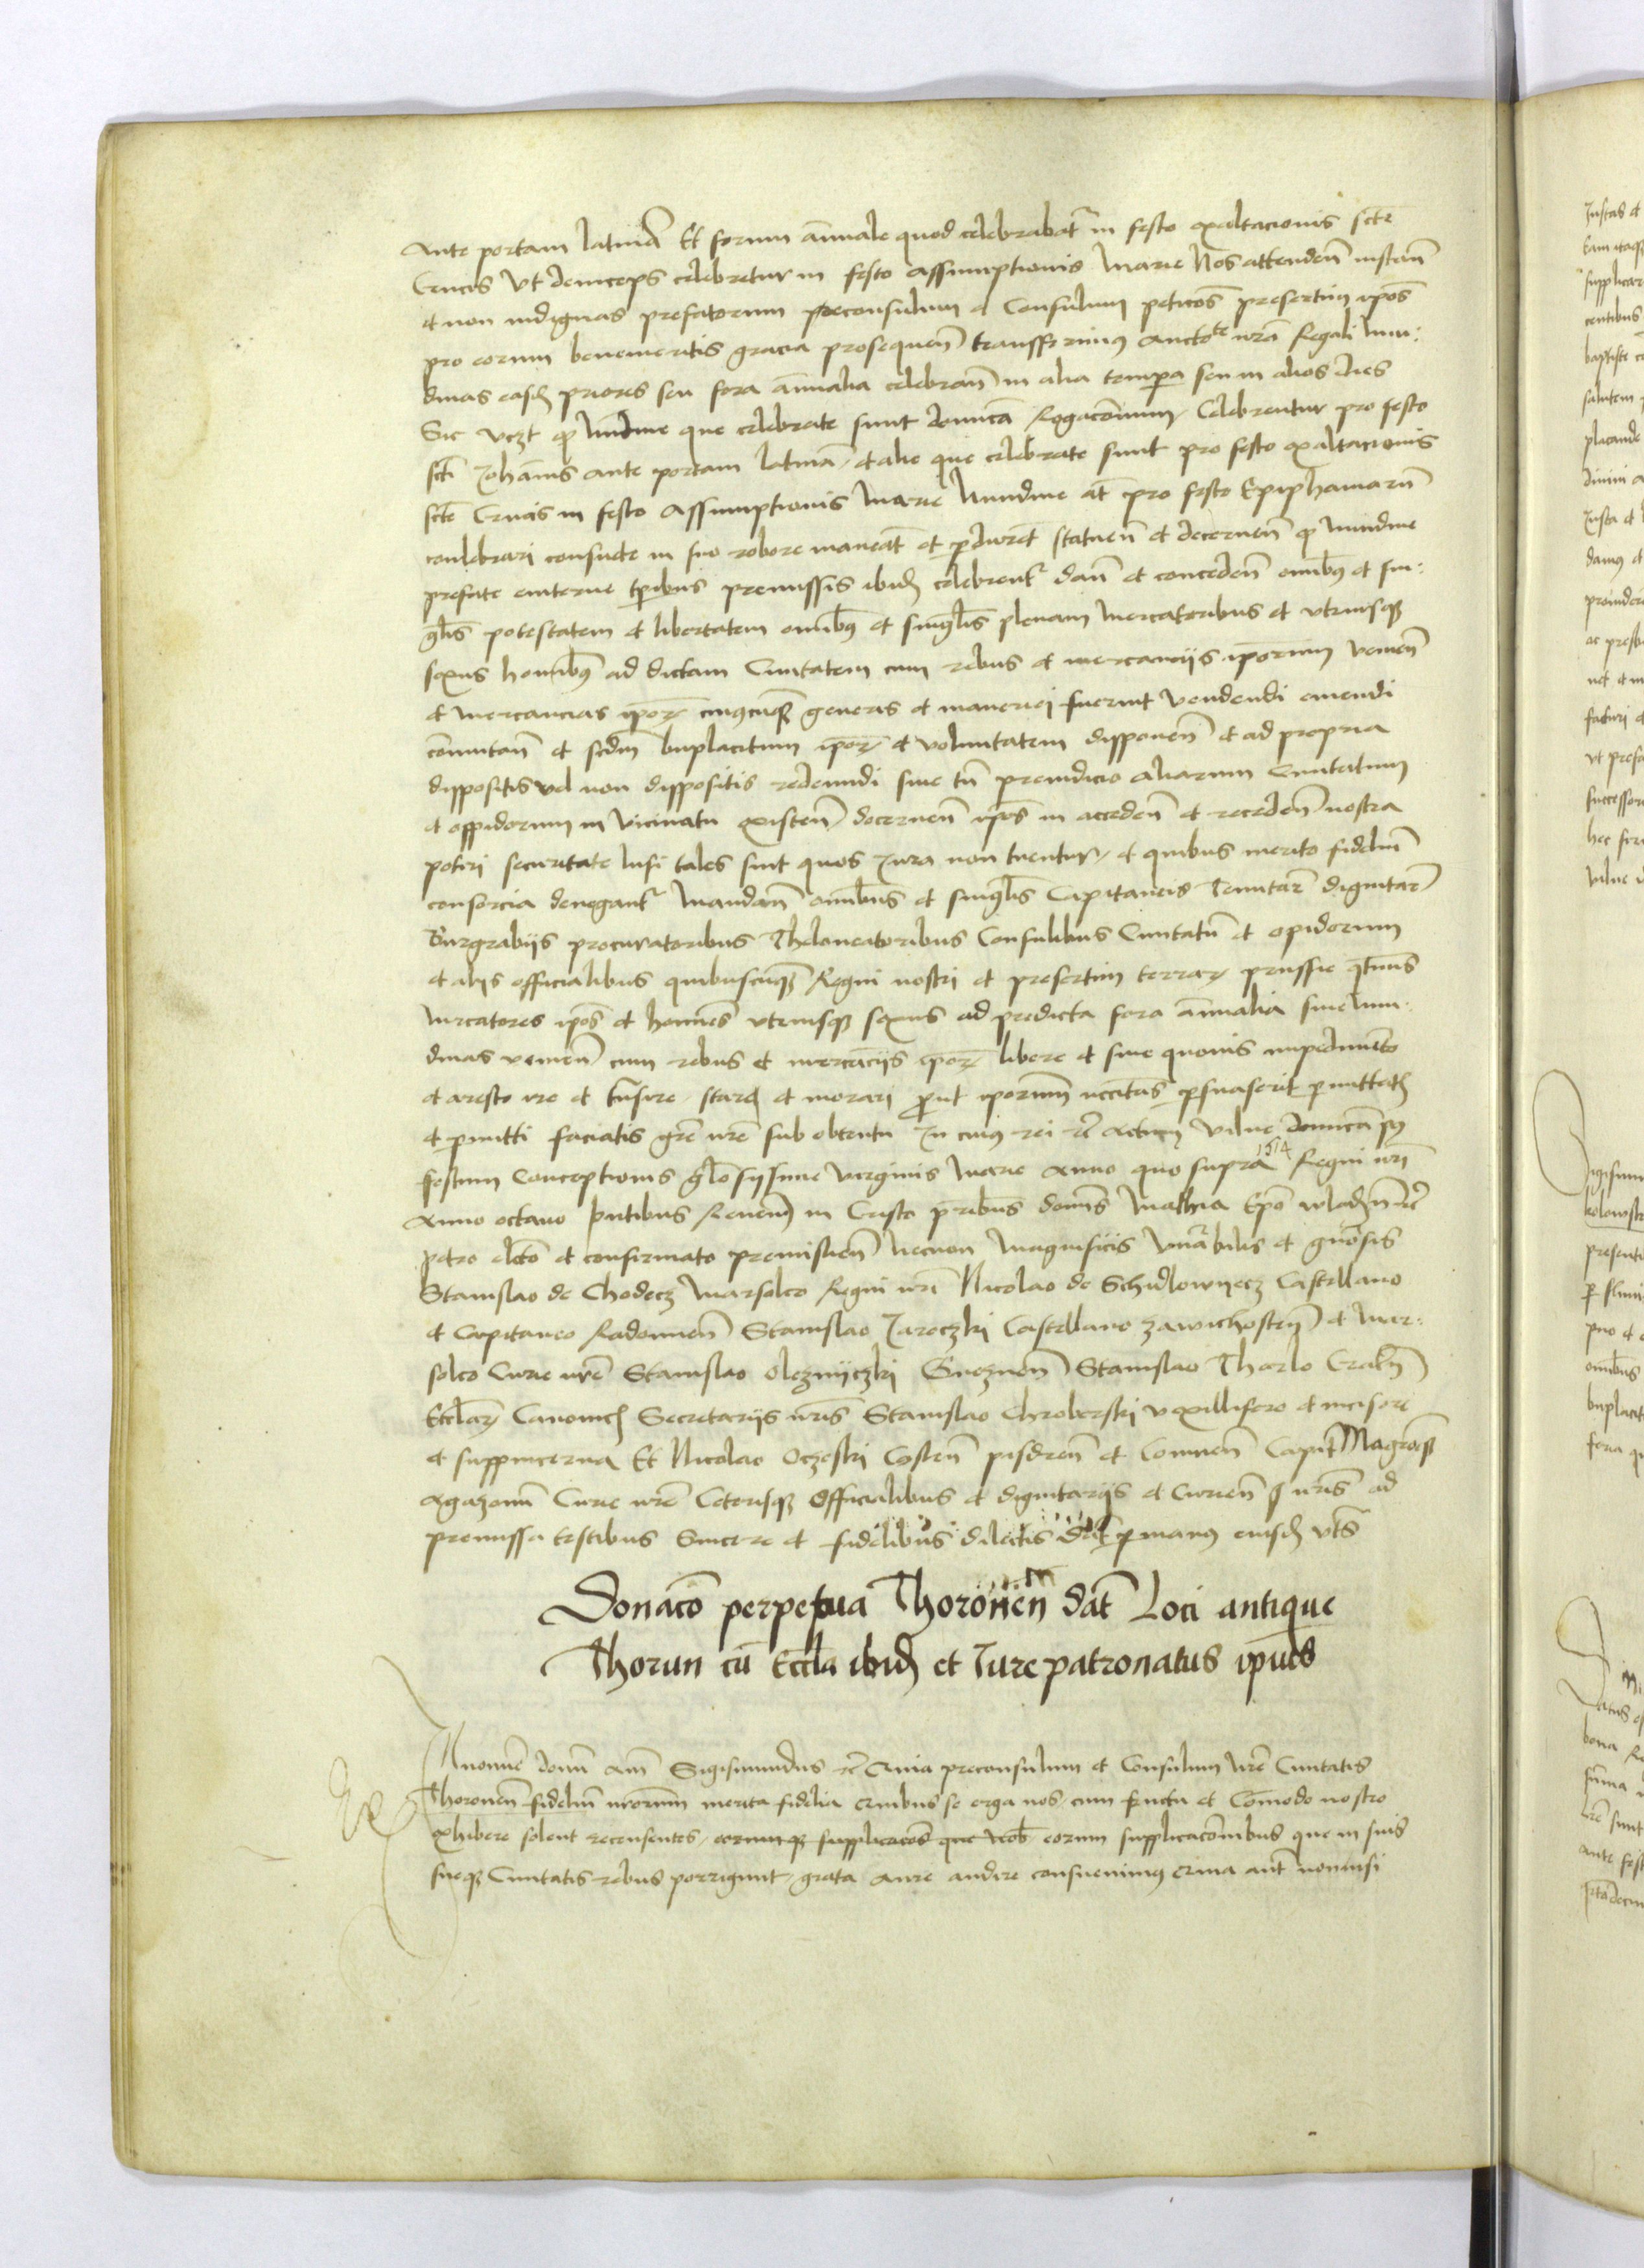 Ante portam latinā Et forum annuale quod celebrabat᷑ in festo exaltacionis scte
Crucis Vt deinceps celebretur in festo Assumptionis Marie Nos attendeñ instan̄
et non indignas prefatorum preconsulum et Consulum peticōes presertim ipōs
pro eorum benemeritis gracia prosequen̄ transfferimus auctote nrā Regali Nun:
dinas easd priores seu fora annualia celebran̄ in alia tempora seu in alios dies
Sic vczt qz Nundine que celebrate sunt dominicā Rogacōnum Celebrentur pro festo
scti Johānis ante portam latinā, et alie que celebrate sunt pro festo exaltacionis
scte Crucis in festo Assumptionis Marie Nundine at pro festo Epiphaniarū
conlebrari consuete in suo robore maneāt et pduret statuen̄ et decernen̄ qz Nundine
prefate eviterne tpibus premissis ibid celebrent᷑ dan̄ et conceden̄ omibꝫ et sin:
glis potestatem et libertatem omibꝫ et singlis plenam Mercatoribus et vtriusqz
sexus homibꝫ ad dictam Ciuitatem cum rebus et mercanciis ipōrum venien̄
et mercancias ipor cuiuscūqz generis et maneriei fuerint vendendi emendi
cōmutan̄ et scdm bnplacitum ipor et voluntatem disponen̄ et ad propria
dispositis vel non dispositis redeundi sine tn̄ preiudicio aliarum Ciuitatum
et oppidorum in vicinatu existen̄ decernen̄ ipōs in acceden̄ et receden̄ nostra
potiri securitate Nisi tales sint quos Iura non tuentur, et quibus merito fidelium̄
consorcia denegant᷑ Mandan̄ omibus et singlis Capitaneis Tenutar dignitar
Burgrabiis procuratoribus Theloneatoribus Consulibus Ciuitatū et opidorum
et aliis officialibus quibuscūqz Regni nostri et presertim terrar prussie qtenus
Mercatores ipōs et homines vtriusqz sexus ad predicta fora annualia siue Nun:
dinas venien̄ cum rebus et mercāciis ipor libere et sine quouis impedimēto
et aresto ire et trāsire, stare et morari put ipōrum necitas psuaserit pmittatis
et pmitti faciatis gre nrē sub obtentu In cuius rei etc Actum Vilne dominicā pꝰ
festum Conceptionis glosissime virginis Marie Anno quo supra 1514 Regni nrī
Anno octauo pntibus Reuen̄ in Cristo prībus domis Mathia Epo wladn̄ etc
petro elcto et confirmato premislien̄ Necnon Magnificis Venerabilis et gnosis
Stanislao de Chodecz Marsalco Regni nrī Nicolao de Schidlowyecz Castellano
et Capitaneo Radomien̄ Stanislao Jaroczki Castellano zawichostn̄ et Mar:
salco Curie nrē Stanislao Oleznyczki Gneznen̄ Stanislao Tharlo Cracn̄
Ecclar Canonicis Secretariis nrīs Stanislao Chroberski vexillifero et incisore
et suppincerna Et Nicolao Oczeski Costen̄ pisdren̄ et Coninen̄ Capit Magrōqz
Agazonū Curie nrē Ceterisqz Officialibus et dignitariis et Curien̄ s nrīs ad
premissa testibus Sincere et fidelibus dilectis Dat p manus eiusd Vts
Donacō perpetua Thoronen̄ dat Loci antique
Thorun cū Eccla ibid et Iure patronatus ipius
In nomīe domi am̄ Sigismundus etc Quia preconsulum et Consulum nrē Ciuitatis
Thoronen̄ fidelium nrorum̄ merita fidelia quibus se erga nos cum fructu et Cōmodo nostro
exhibere solent recensentes, eorumqz supplicacōes que nob eorum supplicacōnibus que in suis
sueqz Ciuitatis rebus porrigunt, grata aure audire consueuimus Quia aut nonnisi